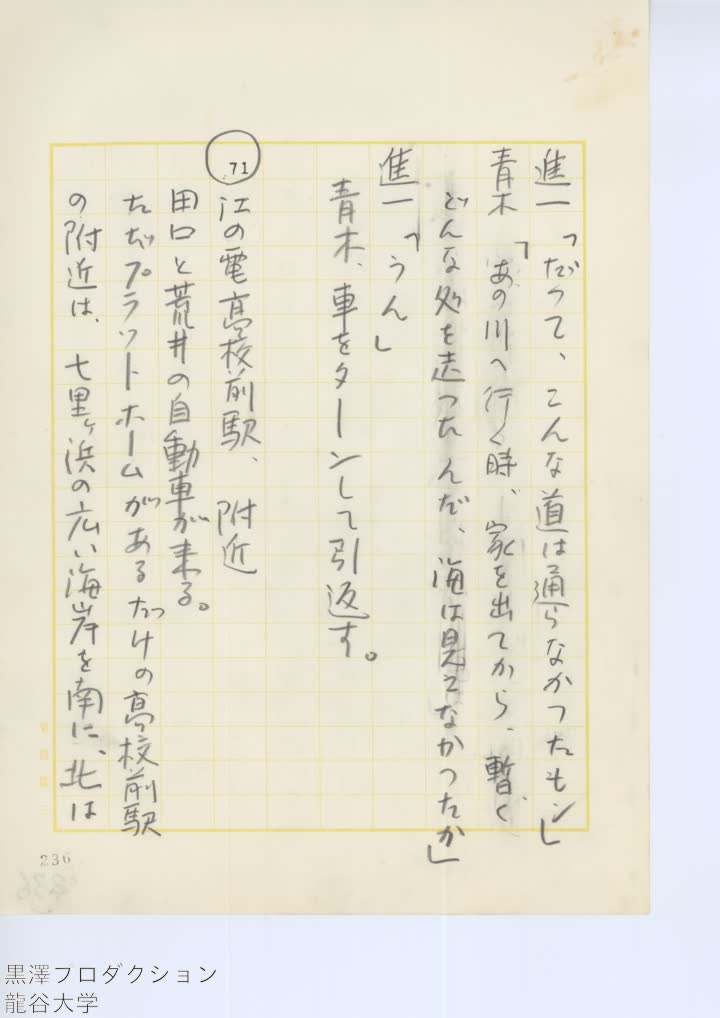 進一「だって、こんな道は通らなかったもン」
青木「あの川へ行く時、家を出てから、暫く
どんな処を走ったんだ、海は見えなかったか」
進一「うん」
青木、車をターンして引返す。
71
江の電高校前駅、附近
田口と荒井の自動車が来る。
たゞプラットホームがあるだけの高校前駅
の附近は、七里ヶ浜の広い海岸を南に、北は
236
黒澤プロダクション
龍谷大学